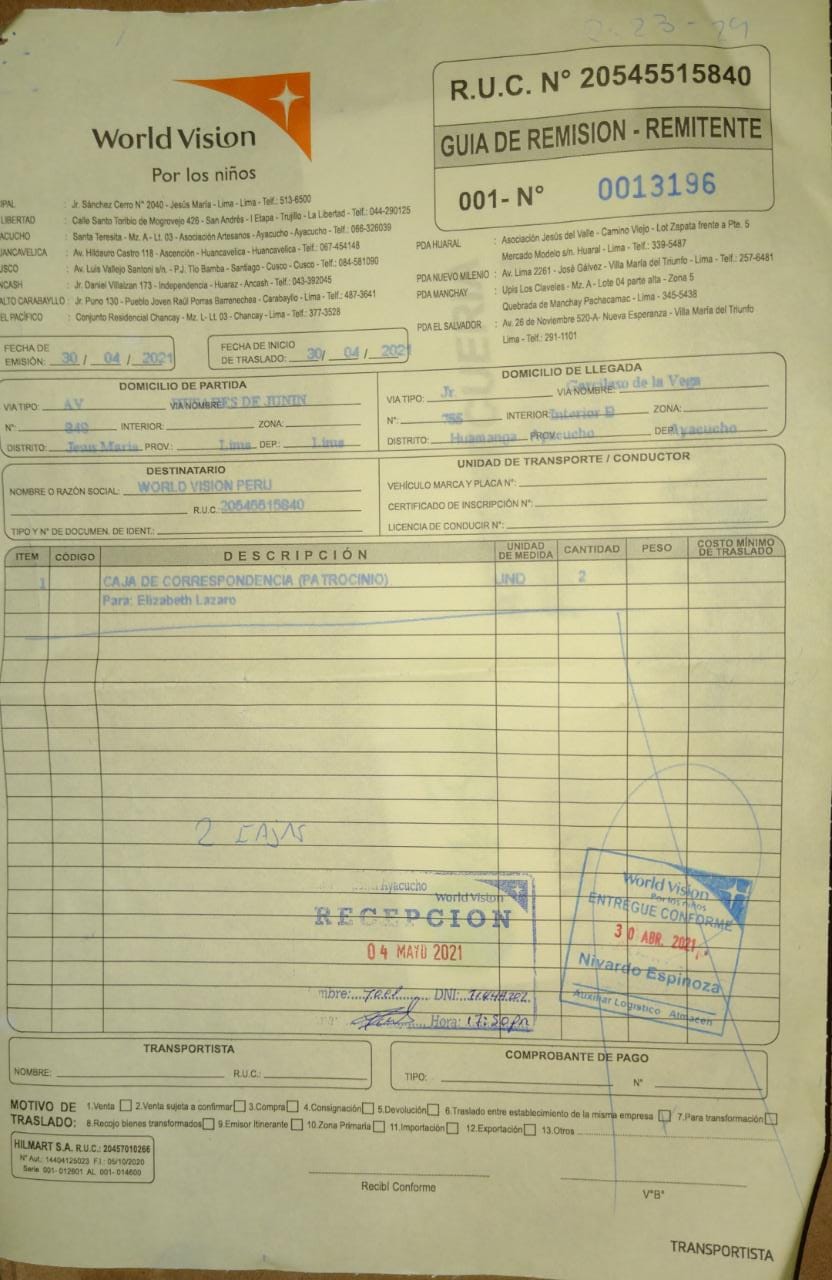 2-23-29
World Vision
Por los niños
R.U.C. N° 20545515840
GUIA DE REMISION - REMITENTE
001- N° 0013196
IPAL : Jr. Sánchez Cerro N° 2040 - Jesús María - Lima - Lima - Telf.: 513-6500
LIBERTAD : Calle Santo Toribio de Mogrovejo 426 - San Andrés - I Etapa - Trujillo - La Libertad - Telf.: 044-290125
ACUCHO : Santa Teresita - Mz. A - Lt. 03 - Asociación Artesanos - Ayacucho - Ayacucho - Telf.: 066-326039
UANCAVELICA : Av. Hildauro Castro 118 - Ascención - Huancavelica - Huancavelica - Telf.: 067-454148
USCO : Av. Luis Vallejo Santoni s/n. - P.J. Tío Bamba - Santiago - Cusco - Cusco - Telf.: 084-581090
NCASH : Jr. Daniel Villaizan 173 - Independencia - Huaraz - Ancash - Telf.: 043-392045
ALTO CARABAYLLO : Jr. Puno 130 - Pueblo Joven Raúl Porras Barrenechea - Carabayllo - Lima - Telf.: 487-3641
EL PACÍFICO : Conjunto Residencial Chancay - Mz. L- Lt. 03 - Chancay - Lima - Telf.: 377-3528
PDA HUARAL : Asociación Jesús del Valle - Camino Viejo - Lot Zapata frente a Pte. 5
Mercado Modelo s/n. Huaral - Lima - Telf.: 339-5487
PDA NUEVO MILENIO : Av. Lima 2261 - José Gálvez - Villa María del Triunfo - Lima - Telf.: 257-6481
PDA MANCHAY : Upis Los Claveles - Mz. A - Lote 04 parte alta - Zona 5
Quebrada de Manchay Pachacamac - Lima - 345-5438
PDA EL SALVADOR : Av. 26 de Noviembre 520-A- Nueva Esperanza - Villa María del Triunfo
Lima - Telf.: 291-1101
FECHA DE EMISIÓN: 30 / 04 / 2021
FECHA DE INICIO DE TRASLADO: 30 / 04 / 2021
DOMICILIO DE PARTIDA
VIA TIPO: AV VIA NOMBRE: DE JUNIN
N°: 949 INTERIOR: ZONA:
DISTRITO: Jesus Maria PROV.: Lima DEP.: Lima
DOMICILIO DE LLEGADA
VIA TIPO: Jr. VIA NOMBRE: Garcilaso de la Vega
N°: 755 INTERIOR: Interior B ZONA:
DISTRITO: Huamanga PROV. Ayacucho DEP. Ayacucho
DESTINATARIO
NOMBRE O RAZÓN SOCIAL: WORLD VISION PERU
R.U.C.: 20545515840
TIPO Y N° DE DOCUMEN. DE IDENT.:
UNIDAD DE TRANSPORTE / CONDUCTOR
VEHÍCULO MARCA Y PLACA N°:
CERTIFICADO DE INSCRIPCIÓN N°:
LICENCIA DE CONDUCIR N°:
ITEM CÓDIGO DESCRIPCIÓN UNIDAD DE MEDIDA CANTIDAD PESO COSTO MÍNIMO DE TRASLADO
1 CAJA DE CORRESPONDENCIA (PATROCINIO) UND 2
Para: Elizabeth Lazaro
2 CAJAS
Ayacucho
World Vision
RECEPCION
04 MAYO 2021
mbre: DNI:
Hora: 17:50pm
World Vision
Por los niños
ENTREGUE CONFORME
30 ABR. 2021
Nivardo Espinoza
Auxiliar Logístico Almacen
TRANSPORTISTA
NOMBRE: R.U.C.:
COMPROBANTE DE PAGO
TIPO: N°
MOTIVO DE TRASLADO: 1.Venta 2.Venta sujeta a confirmar 3.Compra 4.Consignación 5.Devolución 6.Traslado entre establecimiento de la misma empresa 7.Para transformación
8.Recojo bienes transformados 9.Emisor Itinerante 10.Zona Primaria 11.Importación 12.Exportación 13.Otros
HILMART S.A. R.U.C.: 20457010266
N° Aut.: 14404125023 F.I.: 05/10/2020
Serie 001- 012601 AL 001- 014600
Recibí Conforme
V°B°
TRANSPORTISTA